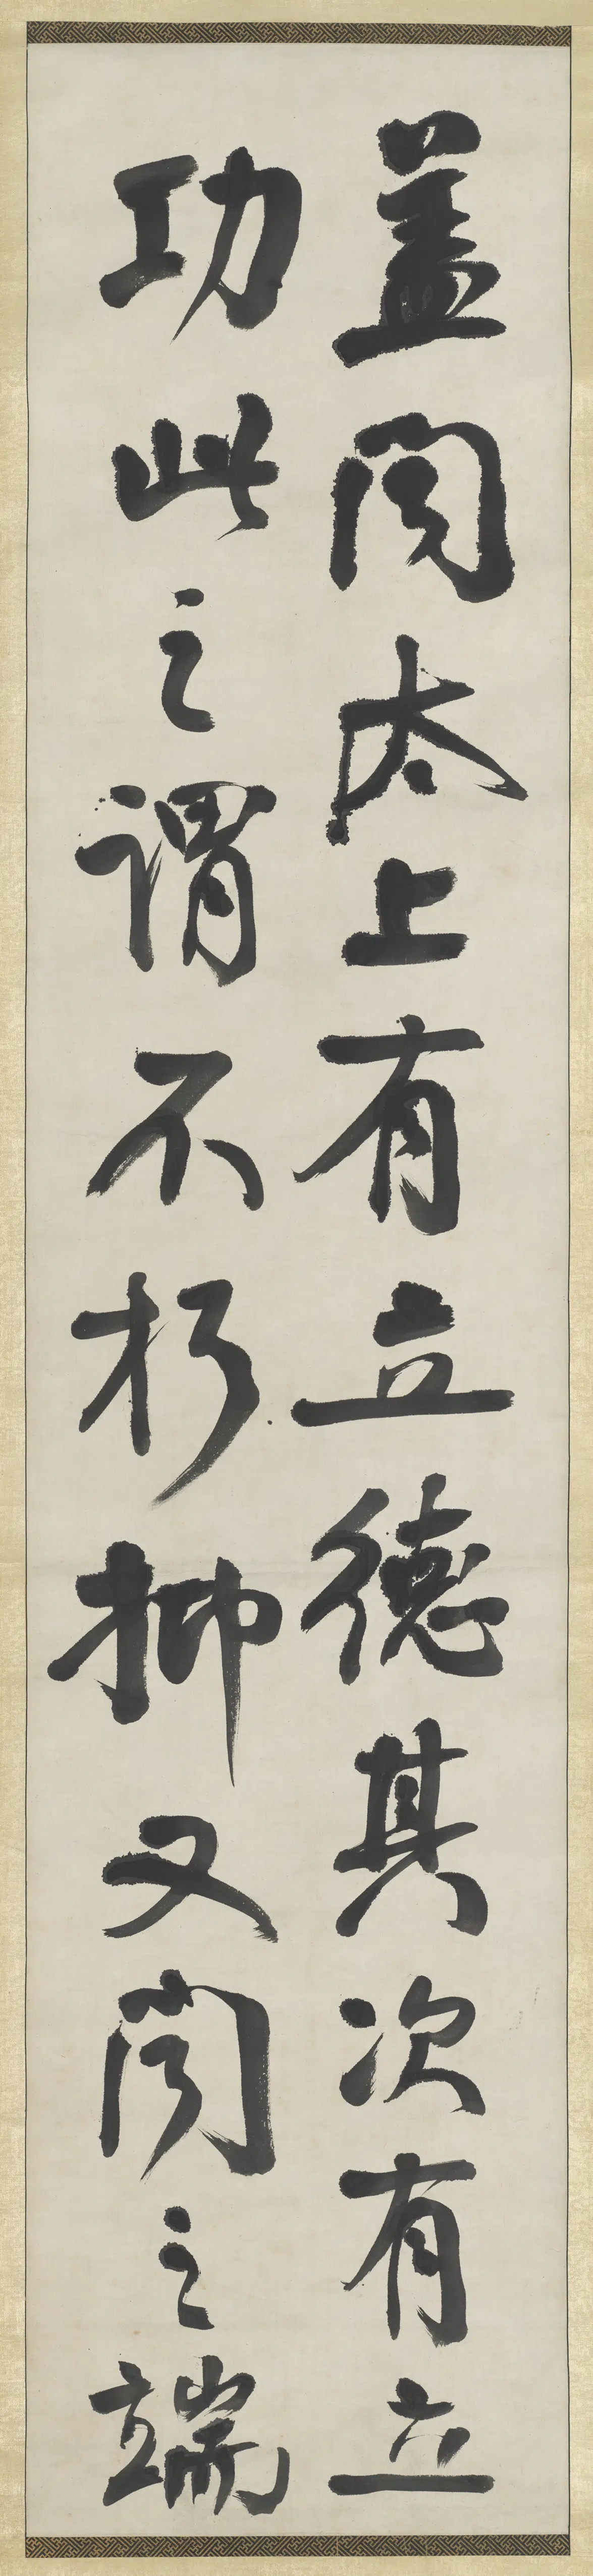 蓋聞太上有立德其次有立
功此之謂不朽抑又聞之端